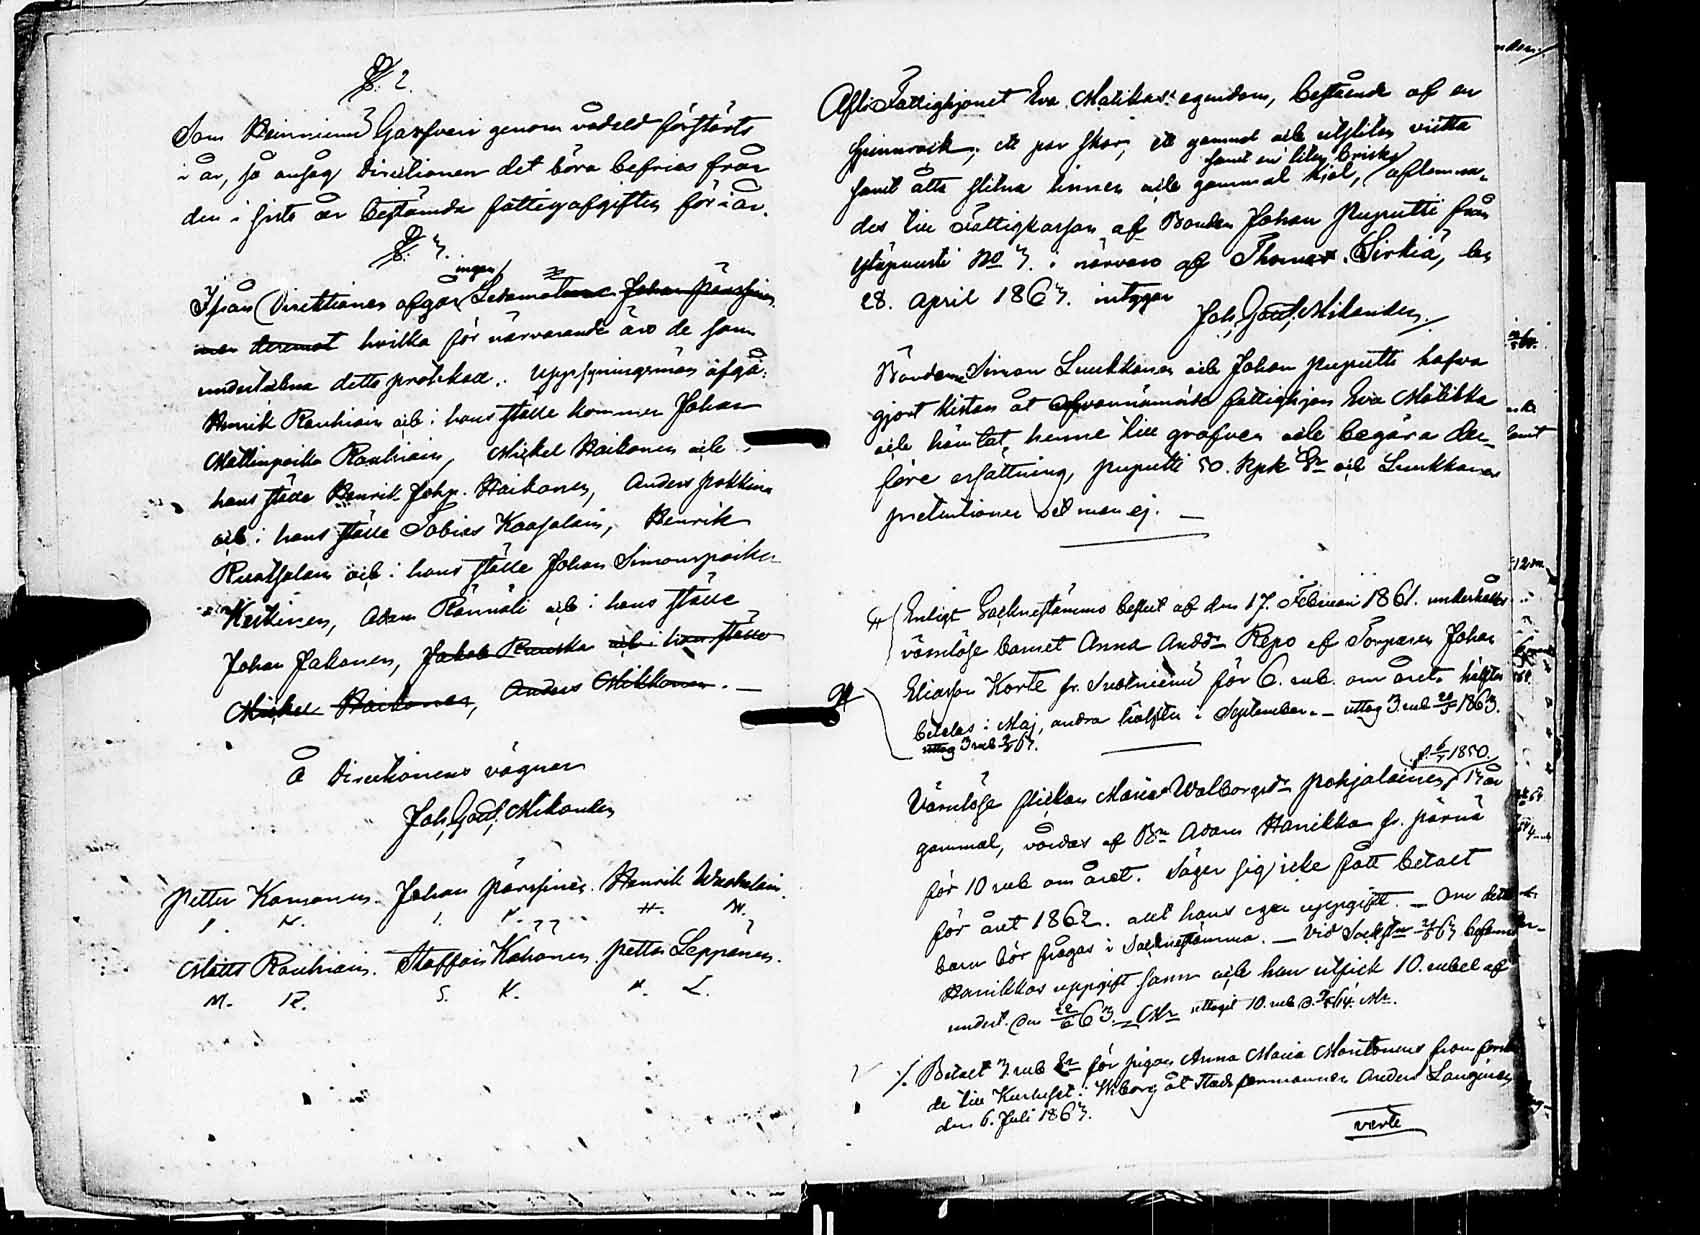 §. 2.
Som Heinniemi Garfveri genom vådeld förstörts
i år, så ansåg Direktionen det böra befrias från
den i sista år bestämda fattigafgiften för i år.
§. 3.
Ifrån Direktionen afgår ingen Ledamot Johan Pärssinen
hvilka för närvarande äro de som
underteckna detta protokoll. Uppsyningsmän afgå:
Henrik Rauhiain och i hans ställe kommer Johan
Mattinpoika Rauhiain, Mickel Haikonen och i
hans ställe Henrik Johp. Haikonen, Anders
och i hans ställe Tobias Kaasalain, Henrik
Ruatsalain och i hans ställe Johan Simonspoika
Keskinen, Adam Rämäli och i hans ställe
Johan Jakonen, Jakob Ruuska och i hans ställe
Mickel Haikonen, Anders Mikkonen. —
Å Direktionens vägnar
Joh. Gust. Mikander
Petter Kansanen. Johan Pärssinen. Henrik
P. K. J. P. H. W.
Matts Rauhiain. Staffan Kohonen. Petter Leppänen.
M. R. S. K. P. L.
Aflo Fattighjonet Eva Matikas egendom, bestående af en
spinnrock, ett par skor, ett gammal och utsliten
samt en liten brisk
samt åtta slitna linnen och gammal kjol, aflemna-
des till Fattigkassan af Bonden Johan Puputti från
No 3. i närvaro af Thomas Sirkiä, den
28. April 1863. intygar
Joh. Gust. Mikander.
Bönderne Simon Luukkonen och Johan Puputti hafva
gjort kistan åt ofvannämnda fattighjon Eva Matikka
och hämtat henne till grafven och begära der-
före ersättning, Puputti 50. Kpk Sr och Luukkonen
pretentioner vet man ej. —
Enligt Socknestämmo beslut af den 17. Februari 1861. underhålles
värnlösa barnet Anna Andsdr Repo af Torparen Johan
Eliasson Korte fr. för 6. rub. om året, hälften
betalas i Maj, andra hälften i September. — uttog 3. rub 1863.
uttog 3 rub 63.
f. 1850
Värnlösa flickan Maria Walborgsdr Pohjalainen, 13 år
gammal, vårdas af Bn Adam Hanikka fr. Pärnä
för 10 rub om året. Säger sig icke fått betalt
för året 1862. allt hans egen uppgift. — Om detta
barn bör frågas i Sockenstämma. — Vid 63 befanns
Hanikkas uppgift sann och han utfick 10. rubel af
undert. den 63. — Mr uttagit 10. rub d. 64. Mr.
Betalt 3 rub Sr för pigan Anna Maria Martonens
de till Kurhuset i Wiborg åt Anders Langinen
den 6. Juli 1863.
verte